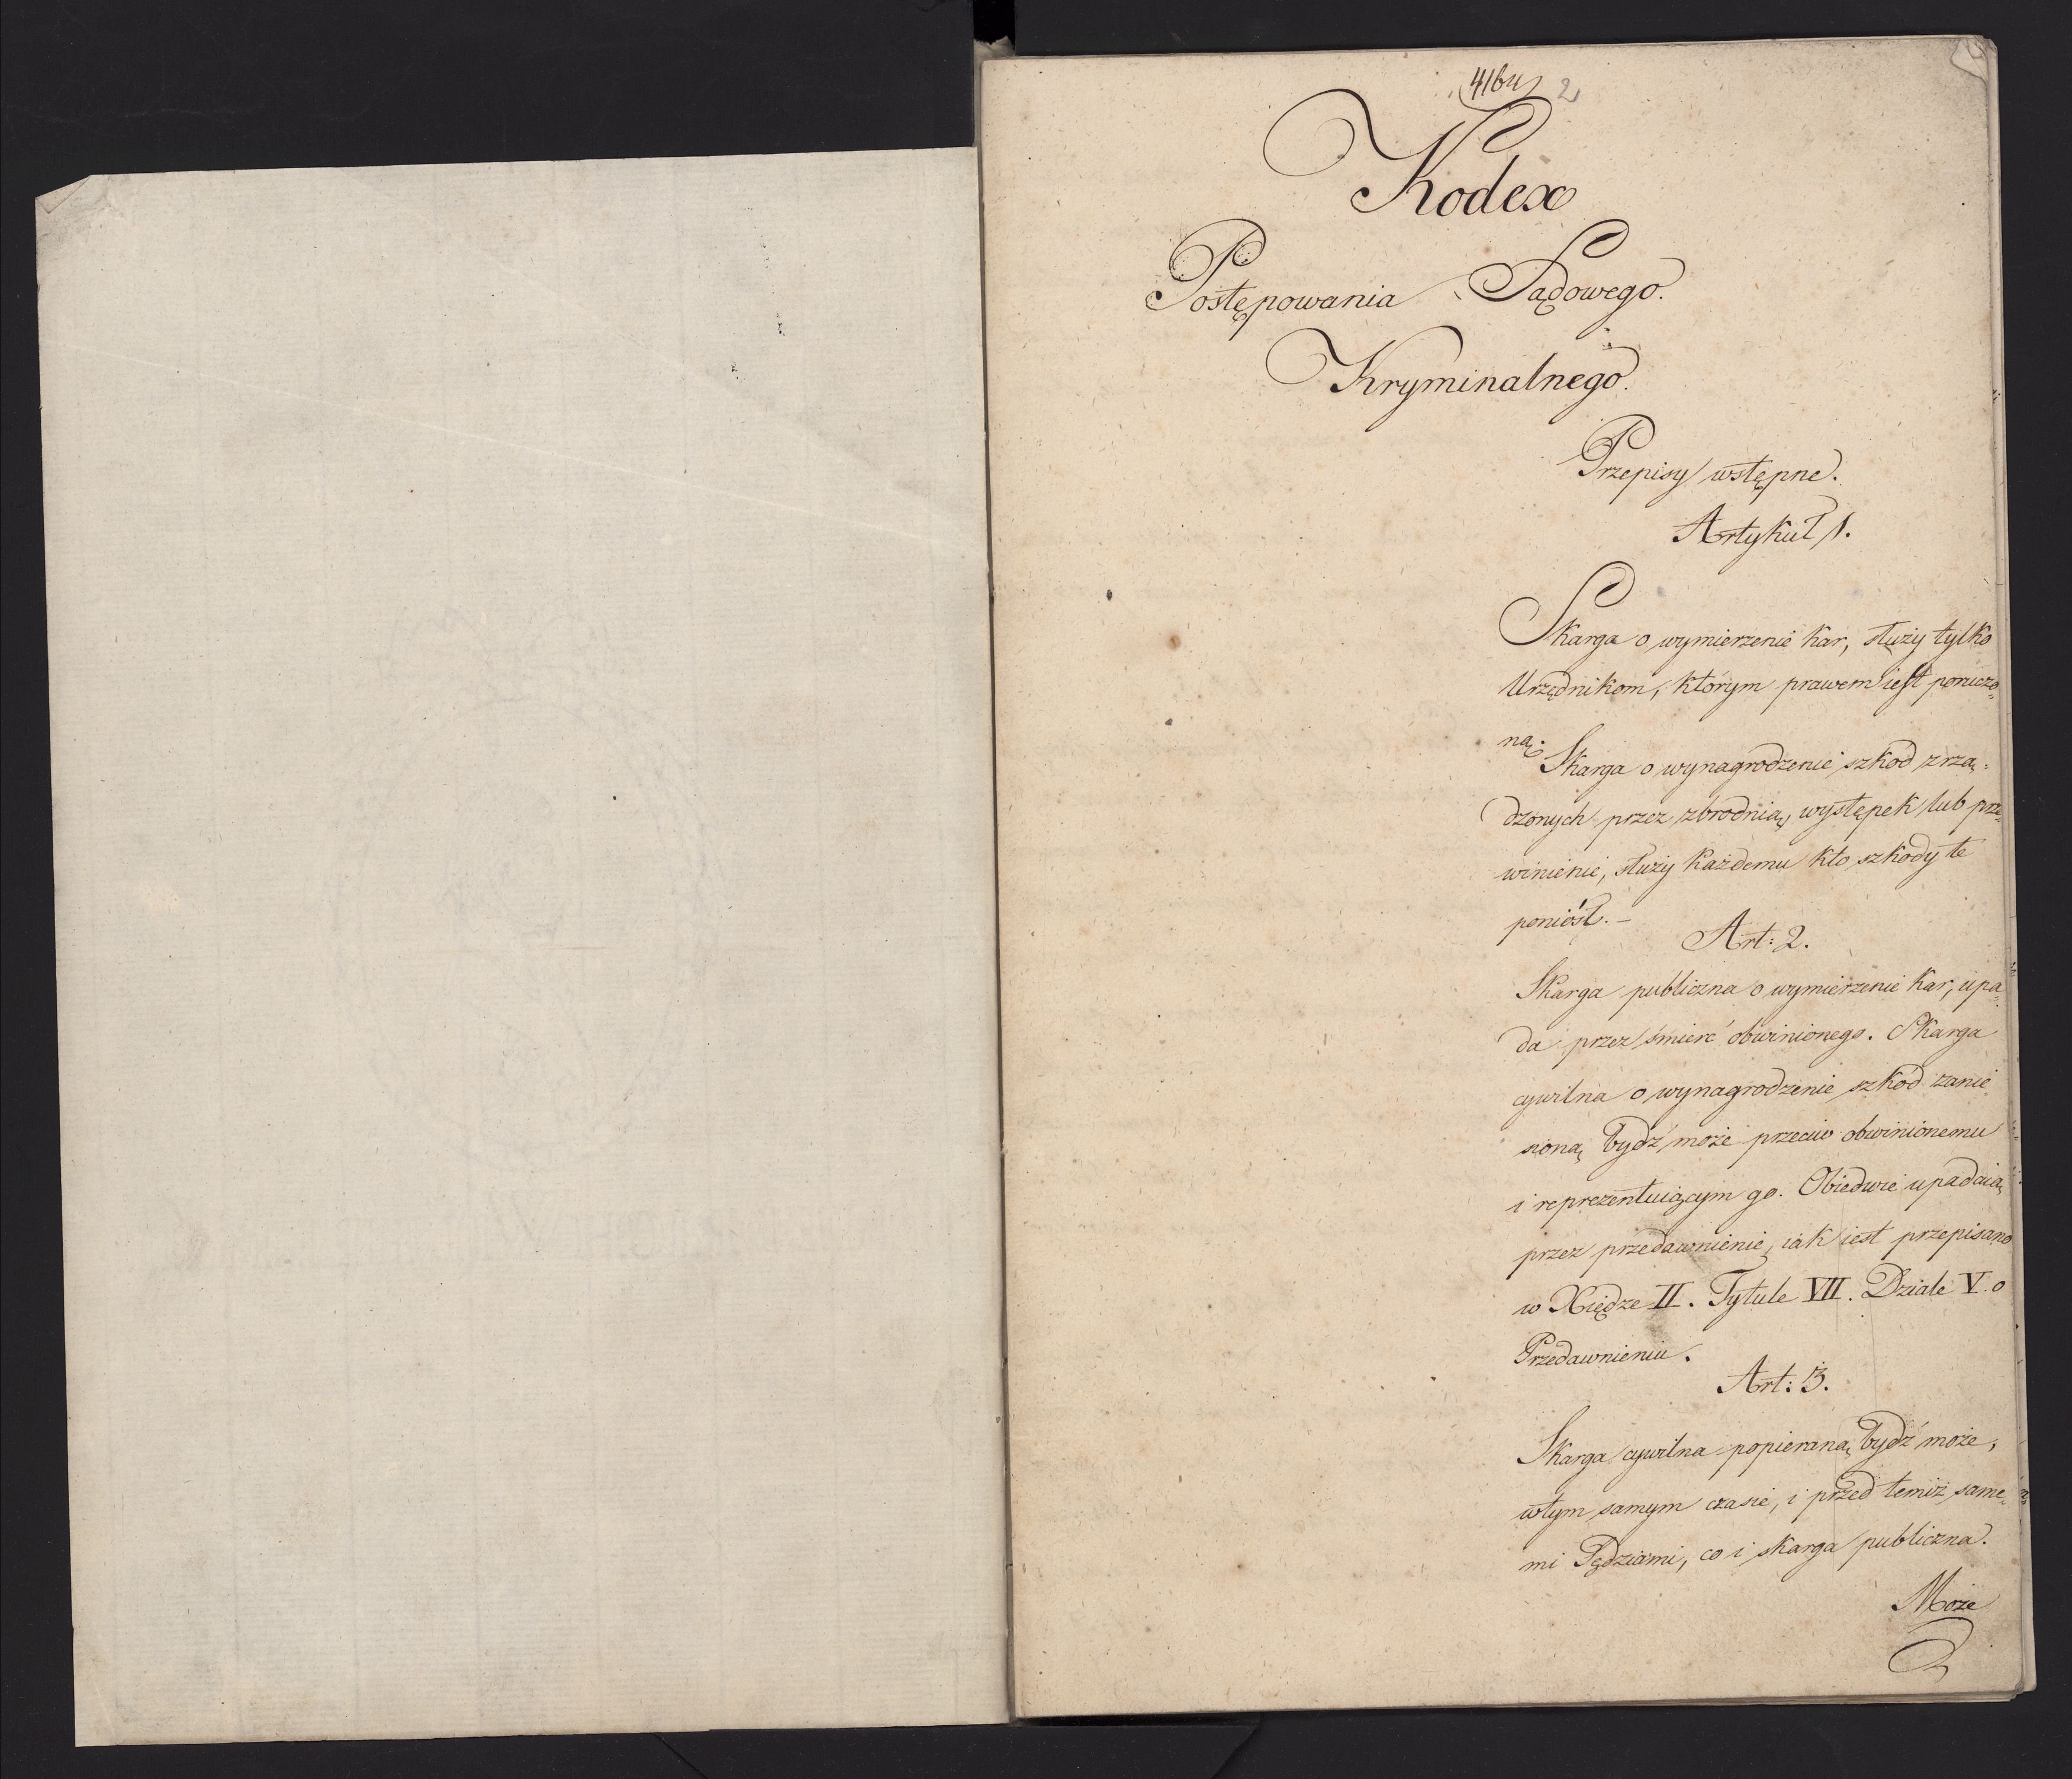 2
Kodex
Postępowania Sądowego.
Kryminalnego.
Przepisy wstępne.
Artykuł 1.
Skarga o wymierzenie kar, służy tylko
Urzędnikom, którym prawem iest poruczo=
ną.
Skarga o wynagrodzenie szkod zrzą=
dzonych przez zbrodnią, występek lub prze=
winienie, służy każdemu kto szkody te
poniósł. –
Art: 2.
Skarga publiczna o wymierzenie kar, upa=
da przez śmierć obwinionego. Skarga
cywilna o wynagrodzenie szkod zanie
sioną bydź może przeciw obwinionemu
i reprezentuiącym go. Obiedwie upadaią
przez przedawnienie, iak iest przepisano
w Xiędze II. Tytule VII. Dziale V. o
Przedawnieniu.
Art: 3.
Skarga cywilna popieraną bydź może,
wtym samym czasie, i przed temiż same=
mi Sędziami, co i skarga publiczna.
Może